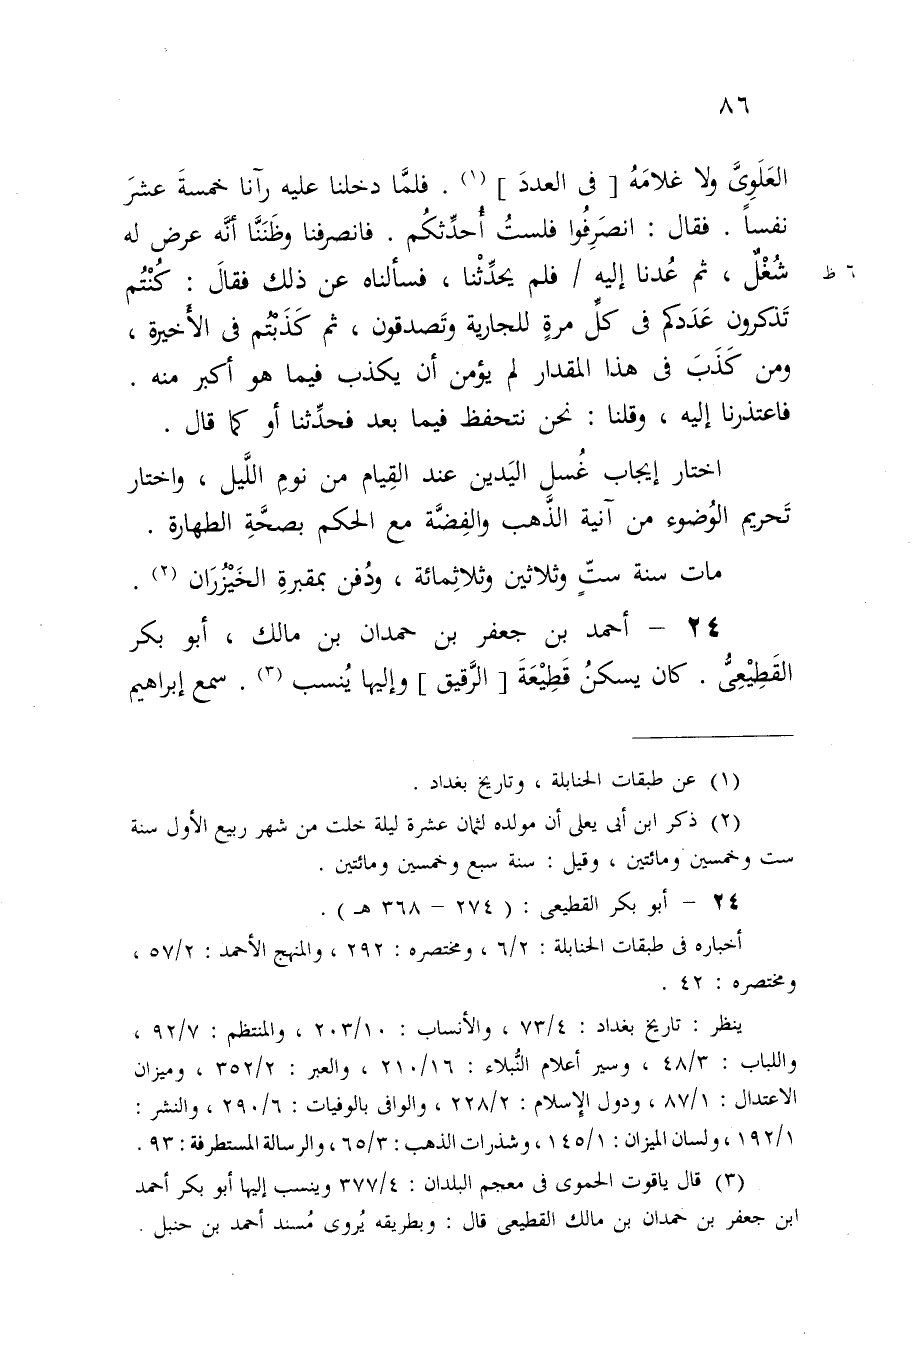 ٨٦
العَلَوِىَّ ولا غلامَهُ [ فى العددَ ] (١) . فلمَّا دخلنا عليه رآنا خمسةَ عشرَ
نفساً . فقال : انصَرِفُوا فلستُ أُحدِّثكُم . فانصرفنا وظَنَنَّا أنَّه عرض له
شُغْلٌ ، ثم عُدنا إليه / فلم يحدِّثْنا ، فسألناه عن ذلك فقالَ : كُنْتُم ٦ ظ
تَذكرون عَدَدكم فى كلِّ مرةٍ للجارية وتَصدقون ، ثم كَذَبْتُم فى الأَخيرة ،
ومن كَذَبَ فى هذا المقدار لم يؤمن أن يكذب فيما هو أكبر منه .
فاعتذرنا إليه ، وقلنا : نحن نتحفظ فيما بعد فحدِّثنا أو كما قال .
اختار إيجاب غُسل اليَدين عند القِيام من نومِ اللَّيل ، واختار
تَحريم الوُضوء من آنية الذَّهب والفِضَّة مع الحكم بصحَّةِ الطهارة .
مات سنة ستّ وثلاثين وثلاثِمائة ، ودُفن بمقبرةِ الخَيْزُرَان (٢) .
٢٤ – أحمد بن جعفر بن حمدان بن مالك ، أبو بكر
القَطِيْعِىُّ . كان يسكنُ قَطِيْعَةَ [ الرَّقيق ] وإليها يُنسب (٣) . سمع إبراهيم
(١) عن طبقات الحنابلة ، وتاريخ بغداد .
(٢) ذكر ابن أبى يعلى أن مولده لثمان عشرة ليلة خلت من شهر ربيع الأول سنة
ست وخمسين ومائتين ، وقيل : سنة سبع وخمسين ومائتين .
٢٤ – أبو بكر القطيعى : ( ٢٧٤ – ٣٦٨ هـ ) .
أخباره فى طبقات الحنابلة : ٦/٢ ، ومختصره : ٢٩٢ ، والمنهج الأحمد : ٥٧/٢ ،
ومختصره : ٤٢ .
ينظر : تاريخ بغداد : ٧٣/٤ ، والأنساب : ٢٠٣/١٠ ، والمنتظم : ٩٢/٧ ،
واللباب : ٤٨/٣ ، وسير أعلام النُّبلاء : ٢١٠/١٦ ، والعبر : ٣٥٢/٢ ، وميزان
الاعتدال : ٨٧/١ ، ودول الإسلام : ٢٢٨/٢ ، والوافى بالوفيات : ٢٩٠/٦ ، والنشر :
١٩٢/١ ، ولسان الميزان : ١٤٥/١ ، وشذرات الذهب : ٦٥/٣ ، والرسالة المستطرفة : ٩٣ .
(٣) قال ياقوت الحموى فى معجم البلدان : ٣٧٧/٤ وينسب إليها أبو بكر أحمد
ابن جعفر بن حمدان بن مالك القطيعى قال : وبطريقه يُروى مُسند أحمد بن حنبل .